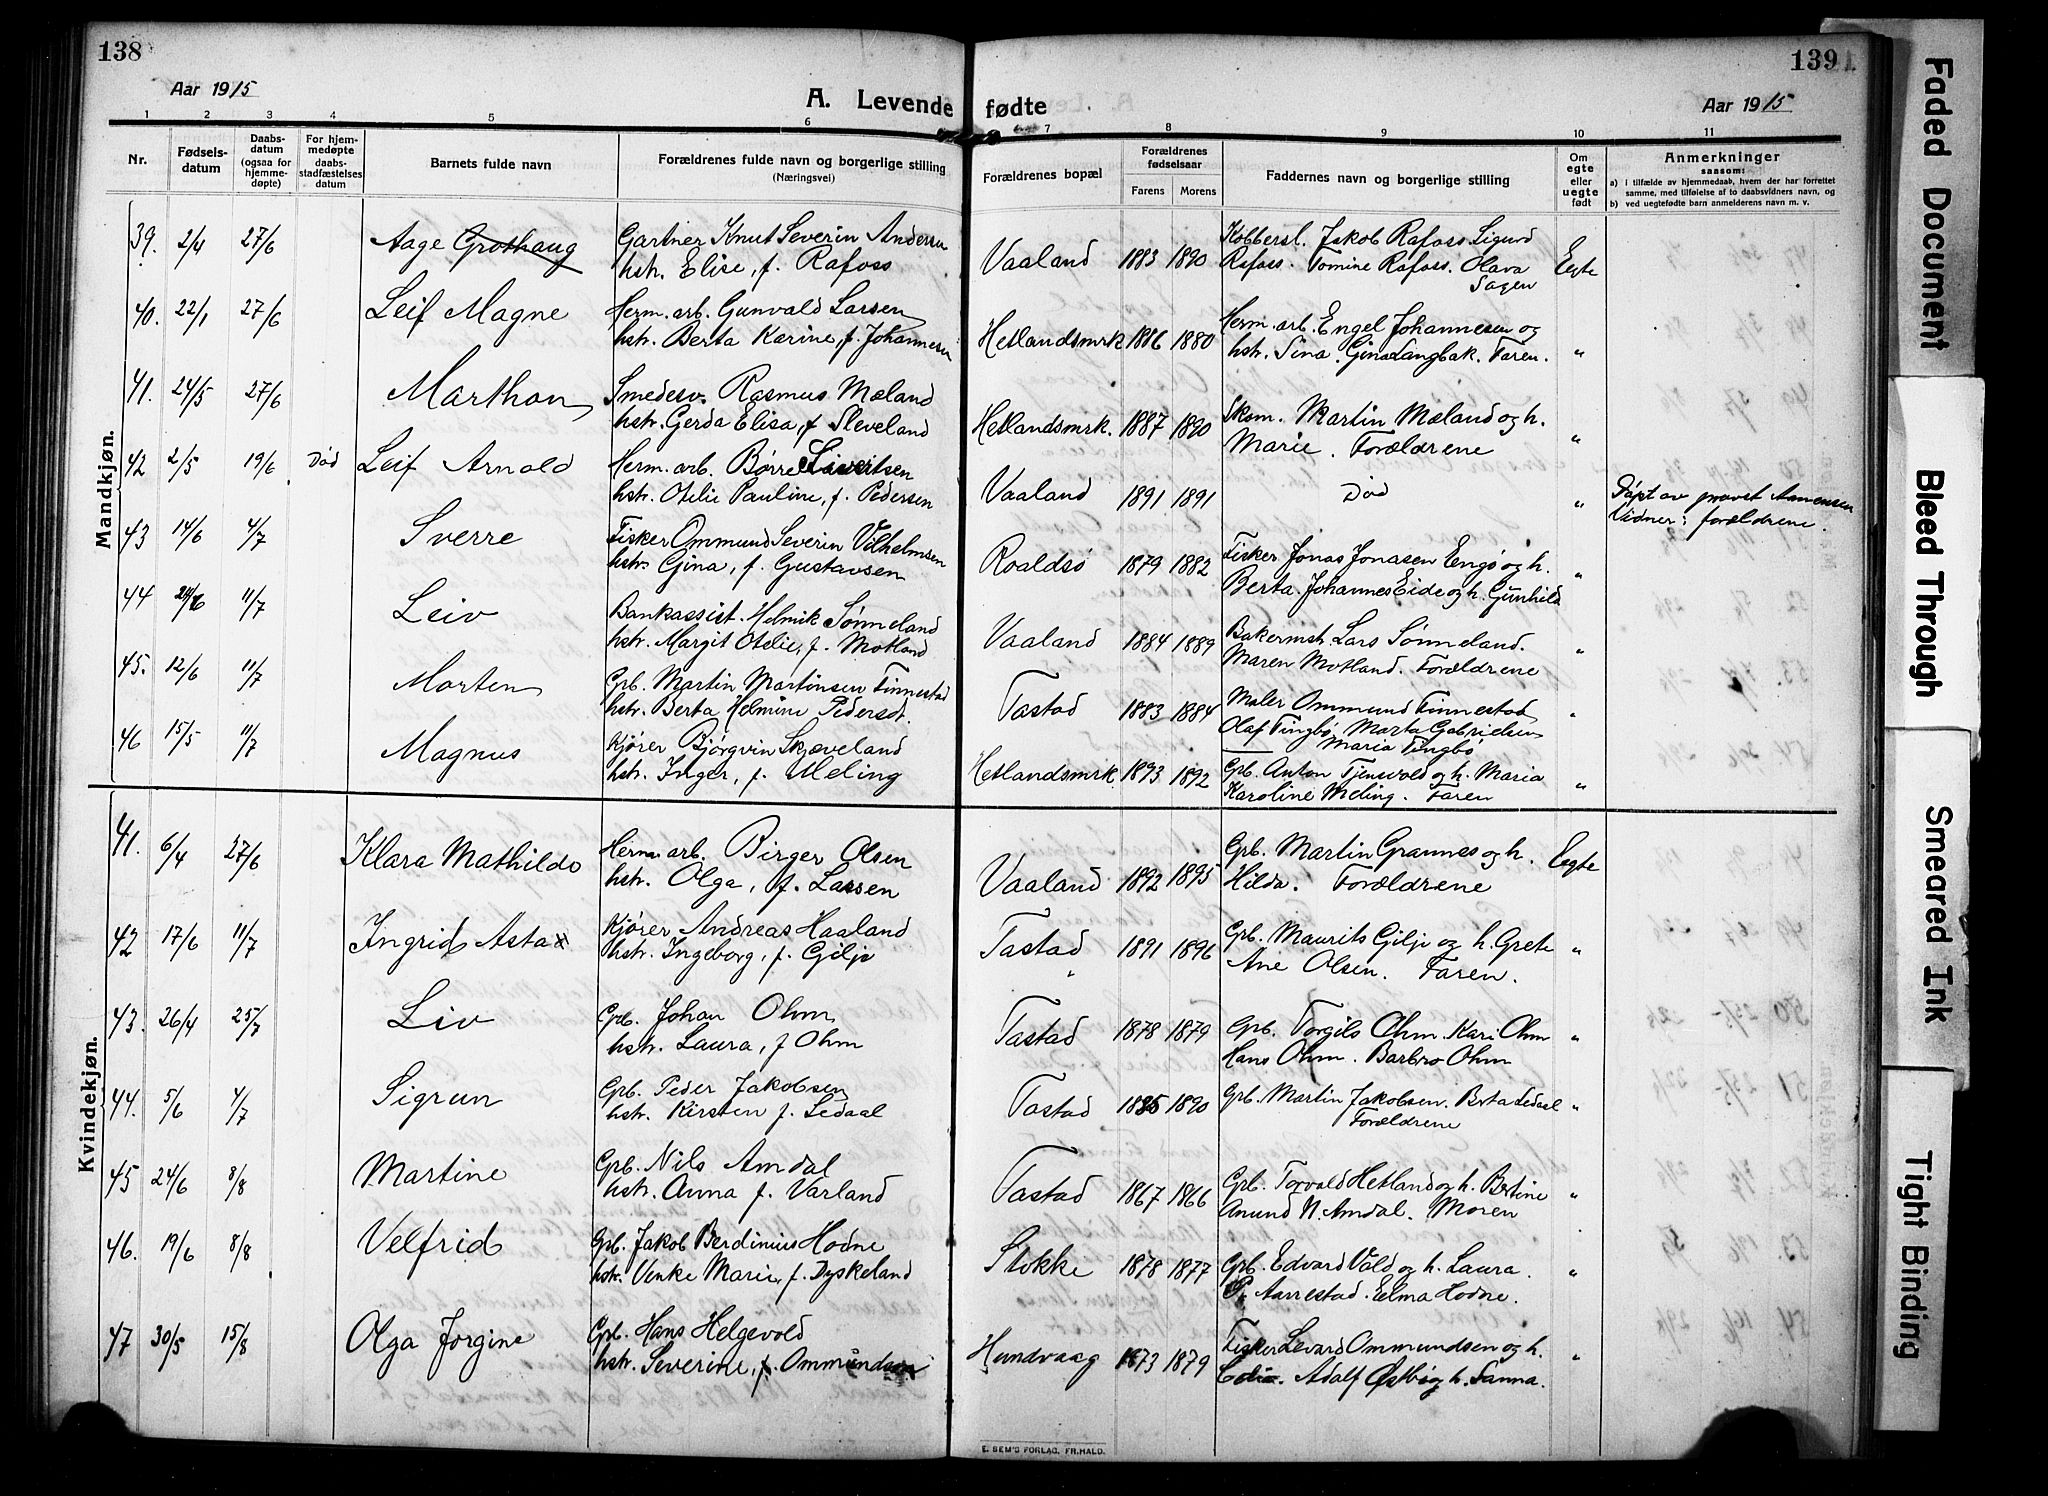 138
139
Aar 1915
A. Levende fødte
Aar 1915
1 2 3 4 5 6 7 8 9 10 11
Nr.
Fødsels-datum
Daabs-datum (ogsaa for hjemme-døpte)
For hjem-medøpte daabs-stadfæstelses datum
Barnets fulde navn
Forældrenes fulde navn og borgerlige stilling
(Næringsvei)
Forældrenes bopæl
Forældrenes fødselsaar
Farens Morens
Faddernes navn og borgerlige stilling
Om egte eller uegte født
Anmerkninger
saasom:
a) i tilfælde av hjemmedaab, hvem der har forrettet samme, med tilføielse af to daabsvidners navn, og
b) ved uegtefødte barn anmelderens navn m. v.
Mandkjøn.
39. 2/4 27/6 Aage Grothaug Gartner Knut Severin Andersen Vaaland 1883 1890 Kobbersl. Jakob Rafoss Sigurd Egte
hstr. Elise, f. Rafoss Rafoss. Tomine Rafoss. Olava
Sagen
40. 22/1 27/6 Leif Magne Herm. arb. Gunvald Larsen Hetlandsmrk 1886 1880 Herm. arb. Engel Johannesen og "
hstr. Berta Karine, f. Johannesen hstr. Sina. Gina Langbak. Faren.
41. 24/5 27/6 Marthon Smedesv. Rasmus Mæland Hetlandsmrk. 1887 1890 Skom. Martin Mæland og h. "
hstr. Gerda Elisa, f. Sleveland Marie. Forældrene
42 2/5 19/6 Død Leif Arnold Herm. arb. Børre Sivertsen Vaaland 1891 1891 Død " Døpt av provst Aanensen
hstr. Otelie Pauline, f. Pedersen Vidner: forældrene.
43 14/6 4/7 Sverre Fisker Ommund Severin Vilhelmsen Roaldsø 1879 1882 Fisker Jonas Jonasen Engø og h. "
hstr. Gina, f. Gustavsen Berta. Johannes Eide og h. Gunhild
44 11/7 Leiv Bankassist. Helmik Sønneland Vaaland 1884 1889 Bakermstr. Lars Sønneland. "
hstr. Margit Otelie, f. Motland Maren Motland. Forældrene
45. 12/6 11/7 Morten Grb. Martin Martinsen Finnestad Tastad 1883 1884 Maler Ommund Finnestad "
hstr. Berta Helmine Pedersdt. Olaf Tingbø. Marta Gabrielsen
Maria Tingbø
46 15/5 11/7 Magnus Kjører Bjørgvin Skjæveland Hetlandsmrk. 1893 1892 Grb. Anton Tjensvold og h. Maria "
hstr. Inger, f. Meling Karoline Meling. Faren
Kvindekjøn.
41. 6/4 27/6 Klara Mathilde Herm. arb. Birger Olsen Vaaland 1892 1895 Grb. Martin Grannes og h. Egte
hstr. Olga, f. Larsen Hilda. Forældrene
42 17/6 11/7 Ingrid Asta Kjører Andreas Haaland Tastad 1891 1896 Grb. Maurits Gilje og h. Grete "
hstr. Ingeborg, f. Gilje " Ane Olsen. Faren.
43. 26/4 25/7 Liv Grb. Johan Ohm Tastad 1878 1879 Grb. Torgils Ohm. Kari Ohm "
hstr. Laura, f Ohm Hans Ohm. Barbro Ohm
44. 5/6 4/7 Sigrun Grb. Peder Jakobsen Tastad 1885 1890 Grb. Martin Jakobsen. Berta Ledaal "
hstr. Kirsten f. Ledaal Forældrene
45 24/6 8/8 Martine Grb. Nils Amdal Tastad 1867 1866 Grb. Torvald Hetland og h. Bertine "
hstr. Anna f. Varland Anund N. Amdal. Moren
46. 19/6 8/8 Velfrid Grb. Jakob Berdinius Hodne Stokke 1878 1877 Grb. Edvard Vold og h. Laura. "
hstr. Venke Marie, f. Dyskeland P. Aarrestad. Elma Hodne.
47 30/5 15/8 Olga Jorgine Grb. Hans Helgevold Hundvaag 1873 1879 Fisker Levard Ommundsen og h. "
hstr. Severine, f. Ommundsen Adolf Østbø og h. Sanna.
E. SEM'S FORLAG, FR.HALD.
Faded Document
Bleed Through
Smeared Ink
Tight Binding